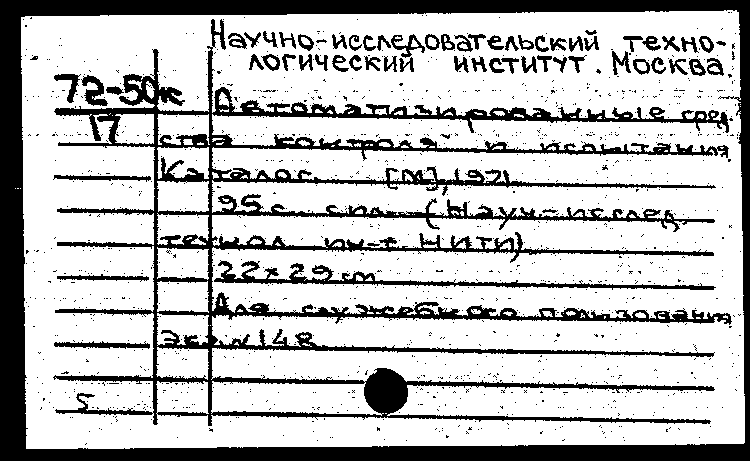 Научно-исследовательский техно-
логический институт. Москва.
72-50к
17
Автоматизированные сред-
ства контроля и испытания
Каталог. [М], 1971
95 с. с ил. (Науч-исслед.
технол ин-т НИТИ)
22 x 29 см
Для служебного пользования
Экз. N 148
5